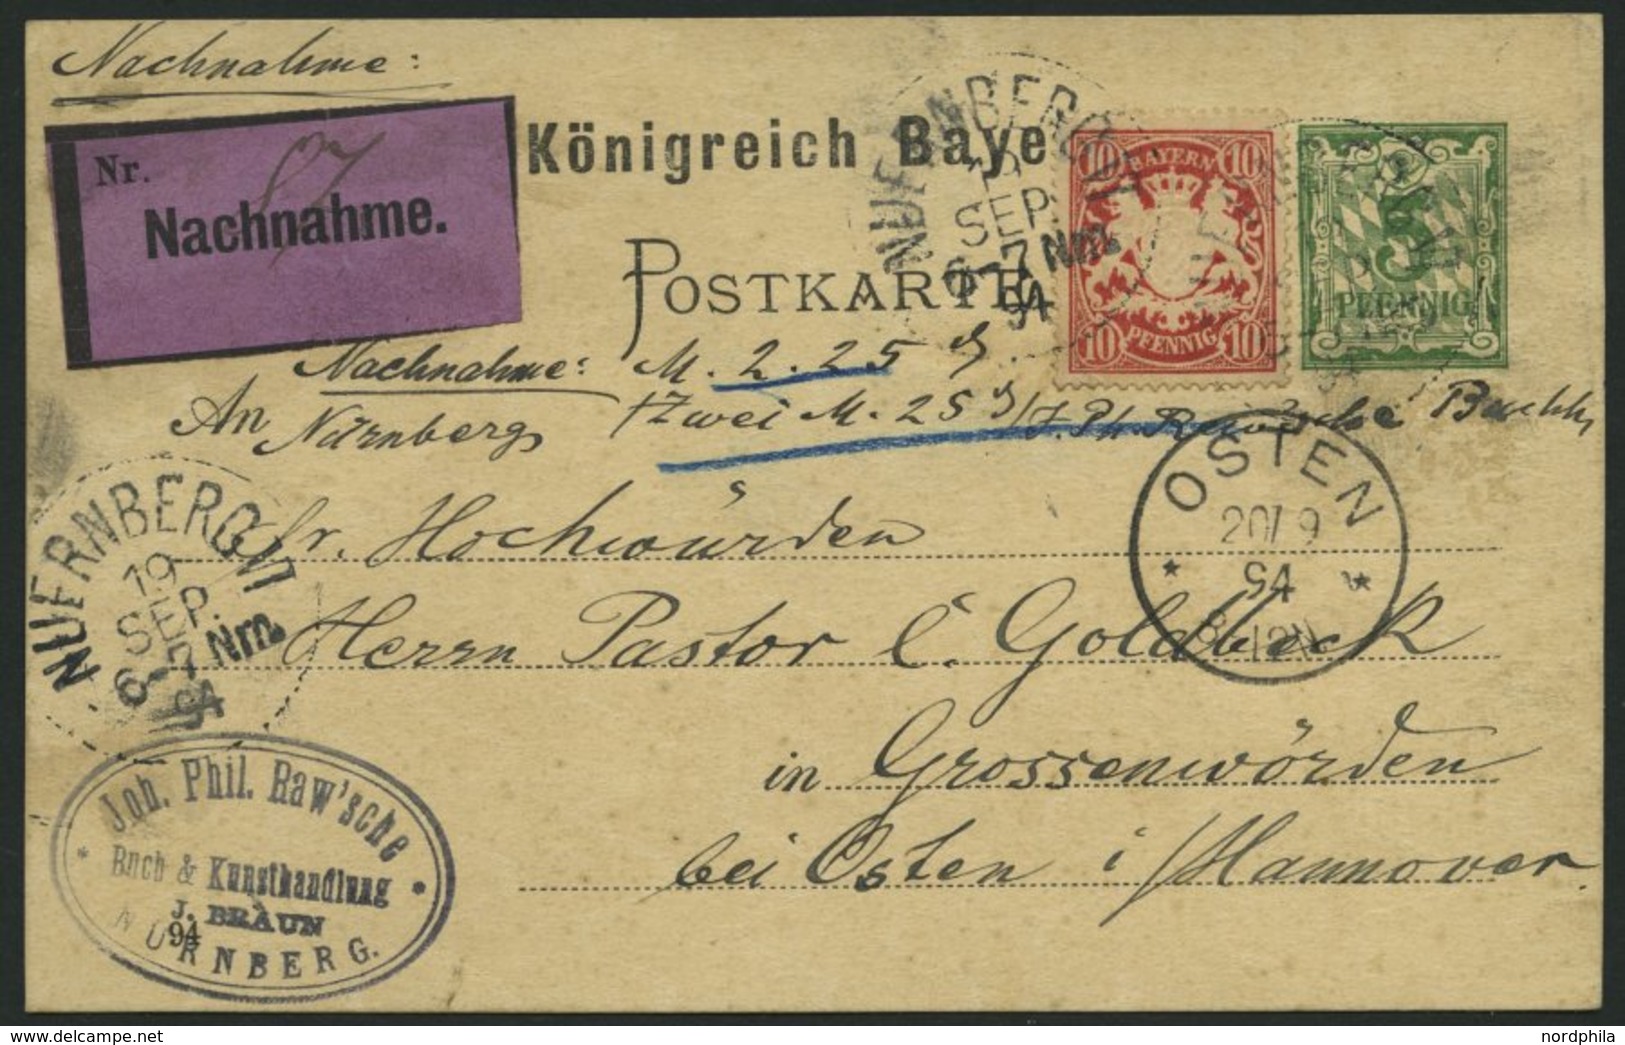 Nachnahme:
Nr. 87
Nachnahme.
Königreich Baye
POSTKARTE
NUERNBERG VI
19
SEP.
6-7 Nm.
94
10 BAYERN 10
10 PFENNIG 10
5
PFENNIG
Nachnahme: M. 2. 25 ₰.
An Nürnberg /Zwei M. 25 ₰/ J. Ph. Raw'sche Buchh
Sr. Hochwürden
Herrn Pastor C. Goldbeck
in Grossenwörden
bei Osten i/Hannover.
OSTEN
20/ 9
94
8-12N
NUERNBERG VI
19
SEP.
6-7 Nm.
94
Joh. Phil. Raw'sche
Buch & Kunsthandlung
J. BRAUN
NÜRNBERG.
94
Copyright Delcampe International SRL
nordphila